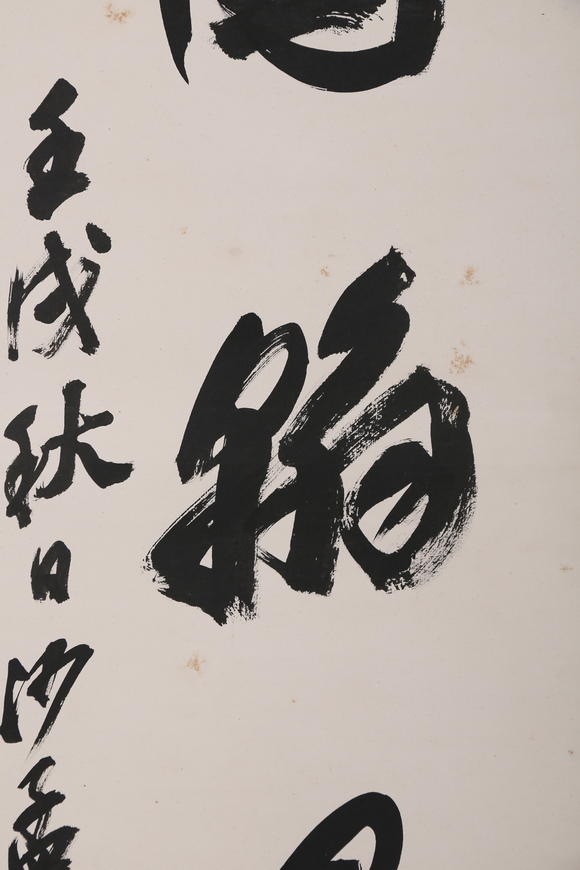 翰
壬戌秋日沙孟